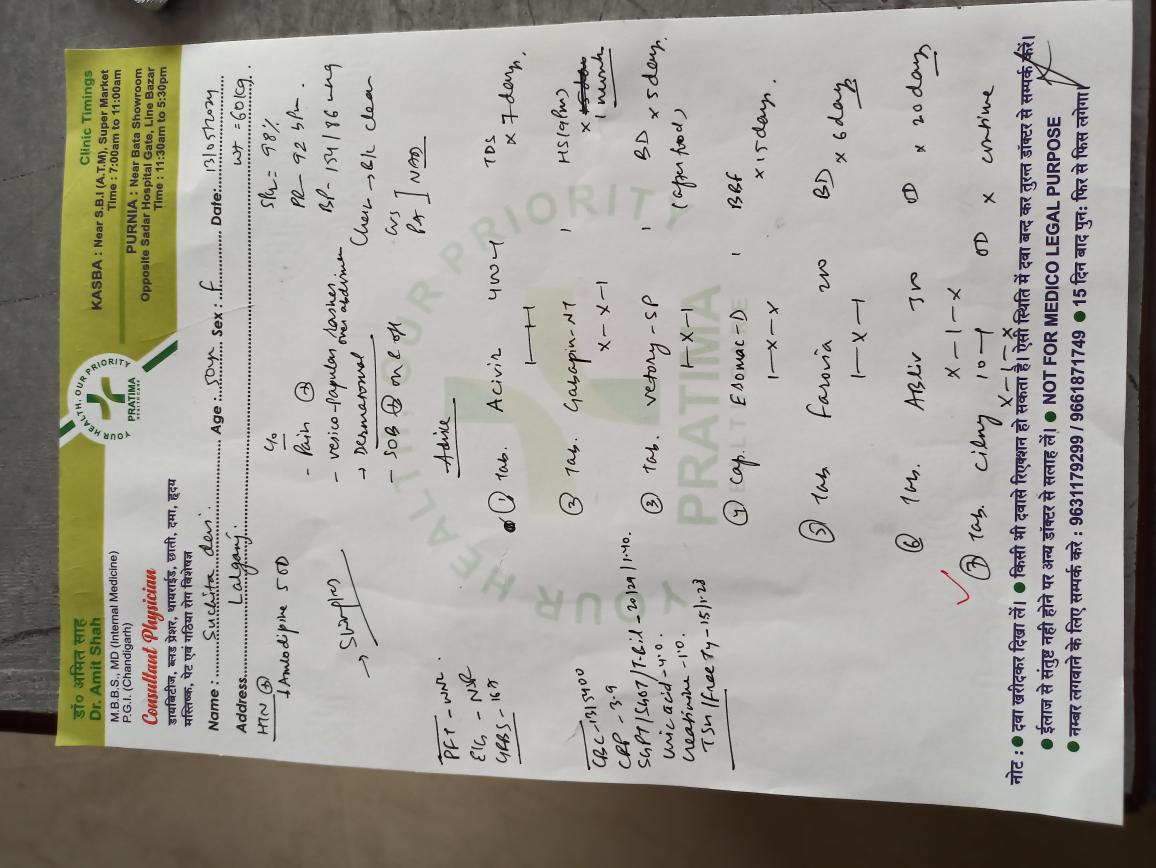 डॉ० अमित साह
Dr. Amit Shah
M.B.B.S., MD (Internal Medicine)
P.G.I. (Chandigarh)
Consultant Physician
डायबिटीज, ब्लड प्रेशर, थायराईड, छाती, दमा, हृदय
मस्तिष्क, पेट एवं गठिया रोग विशेषज्ञ
YOUR HEALTH, OUR PRIORITY
PRATIMA
Clinic Timings
KASBA : Near S.B.I (A.T.M), Super Market
Time : 7:00am to 11:00am
PURNIA : Near Bata Showroom
Opposite Sadar Hospital Gate, Line Bazar
Time : 11:30am to 5:30pm
Name : Suchita devi Age 50yr Sex : F Date: 13/05/2024
Address Lalganj. WT = 60kg.
HTN +
Amlodipine 5 OD
→ Shingles
PFT - WNL
ECG - NSR
GRBS - 167
CBC - 13/5400
CRP - 3.9
SGPT/SGOT/T.Bil - 20/29/1.40.
Uric acid - 4.0.
Creatinine - 1.0.
TSH/Free T4 - 15/1.23
C/o
- Pain +
- vesico-papular rashes over abdomen
→ Dermatomal
- SOB + on & off
SPO2 = 98%
PR - 92 bpm.
BP - 134/86 mmHg
Chest → B/L clear
CVS
PA ] NAD
Advice
① Tab. Acivir 400 - 1 TDS
1—1—1 x 7 days.
② Tab. Gabapin-NT 1 HS (9pm)
x - x - 1 x 1 month
③ Tab. Vetory-SP 1 BD x 5 days.
1 - x - 1 (after food)
④ Cap. Esomac-D 1 BBF
1 - x - x x 15 days.
⑤ Tab. Farovia 200 BD
1 - x - 1 x 6 days
⑥ Tab. Abliv 300 OD x 20 days
x - 1 - x
⑦ Tab. Cilny 10 - 1 OD x continue
x - 1 - x
YOUR HEALTH, OUR PRIORITY
PRATIMA
नोट : ● दवा खरीदकर दिखा लें। ● किसी भी दवासे रिएक्शन हो सकता है। ऐसी स्थिति में दवा बन्द कर तुरन्त डॉक्टर से सम्पर्क करें।
● ईलाज से संतुष्ट नही होने पर अन्य डॉक्टर से सलाह लें। ● NOT FOR MEDICO LEGAL PURPOSE
● नम्बर लगवाने के लिए सम्पर्क करे : 9631179299 / 9661871749 ● 15 दिन बाद पुन: फिर से फिस लगेगा।